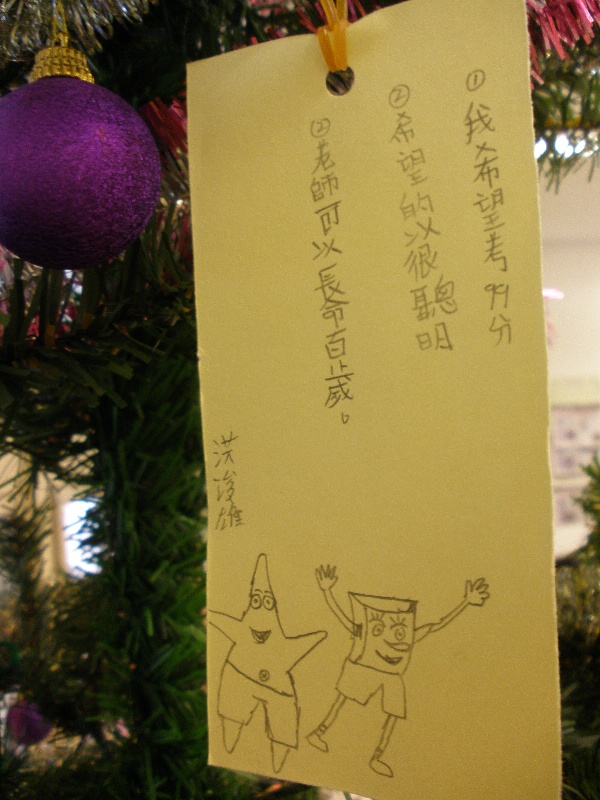 ①我希望考99分
②希望的以很聰明
②老師可以長命百歲。
洪浚雄